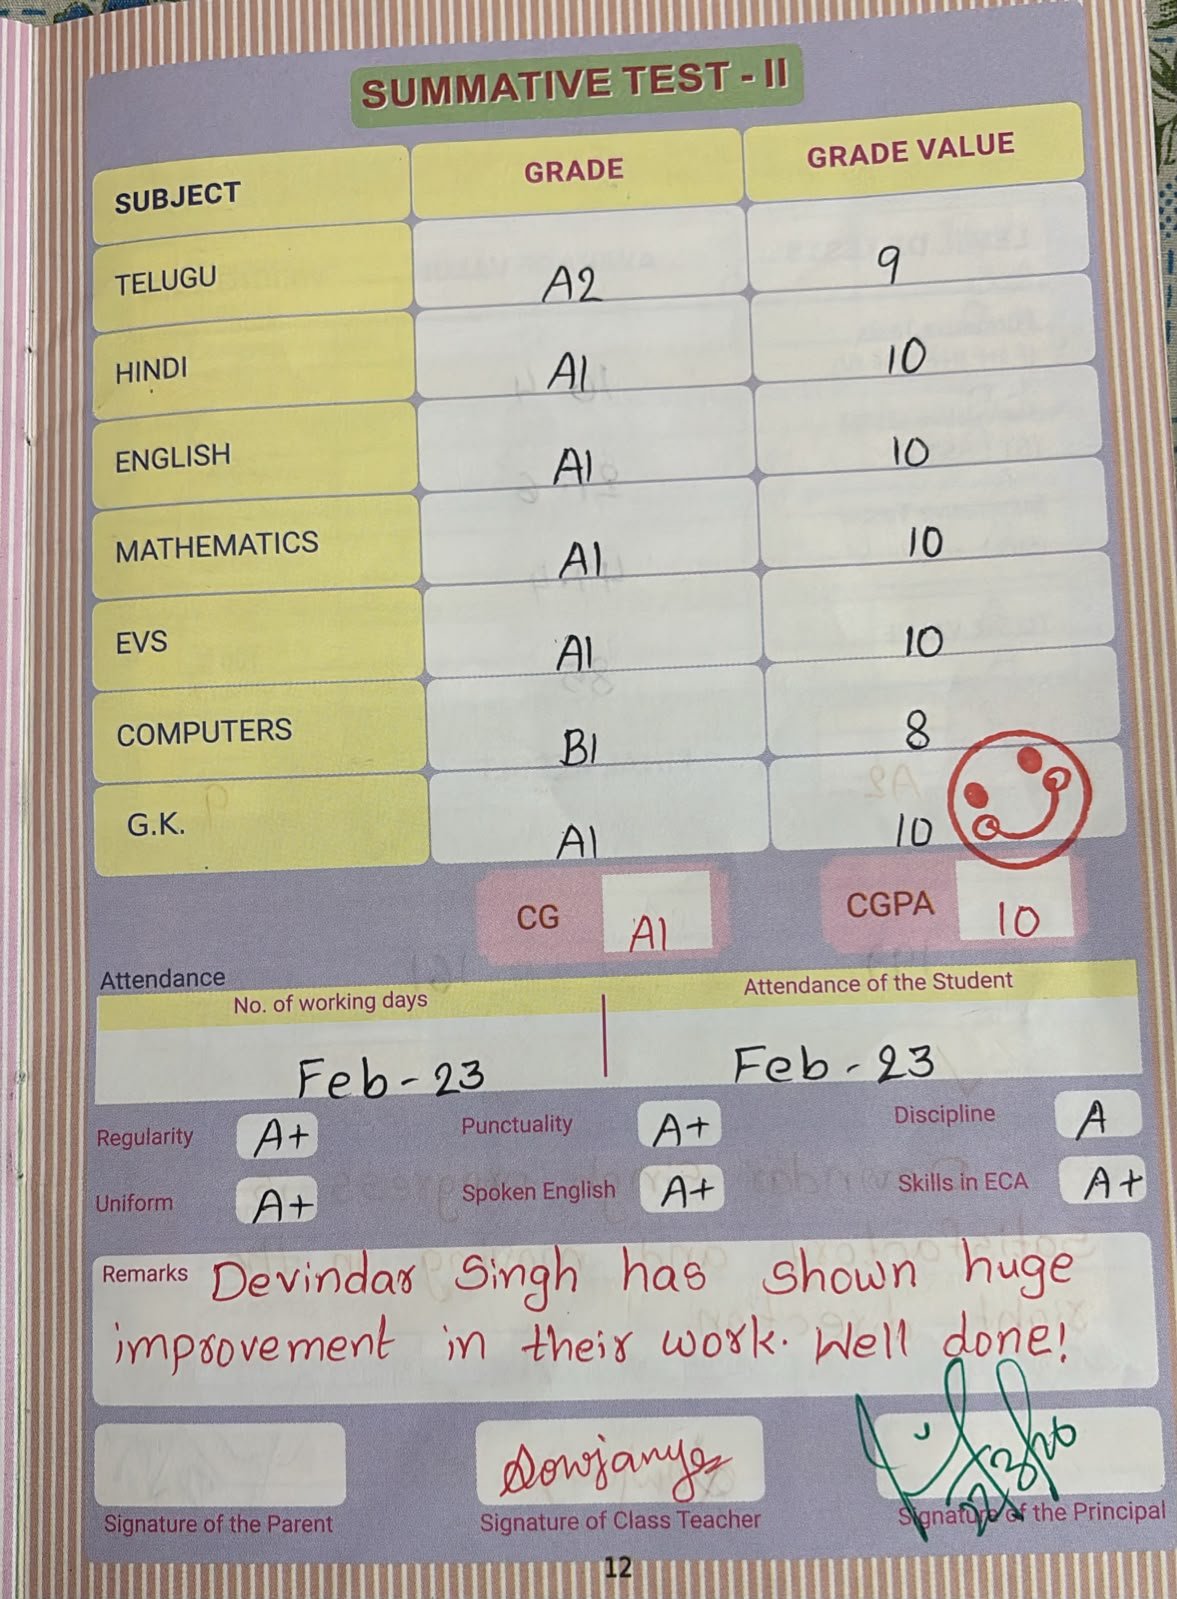 SUMMATIVE TEST - II
SUBJECT GRADE GRADE VALUE
TELUGU A2 9
HINDI A1 10
ENGLISH A1 10
MATHEMATICS A1 10
EVS A1 10
COMPUTERS B1 8
G.K. A1 10
CG A1 CGPA 10
Attendance
No. of working days Attendance of the Student
Feb - 23 Feb - 23
Regularity A+ Punctuality A+ Discipline A
Uniform A+ Spoken English A+ Skills in ECA A+
Remarks Devindar Singh has shown huge
improvement in their work. Well done!
Sowjanya
Signature of the Parent Signature of Class Teacher Signature of the Principal
12